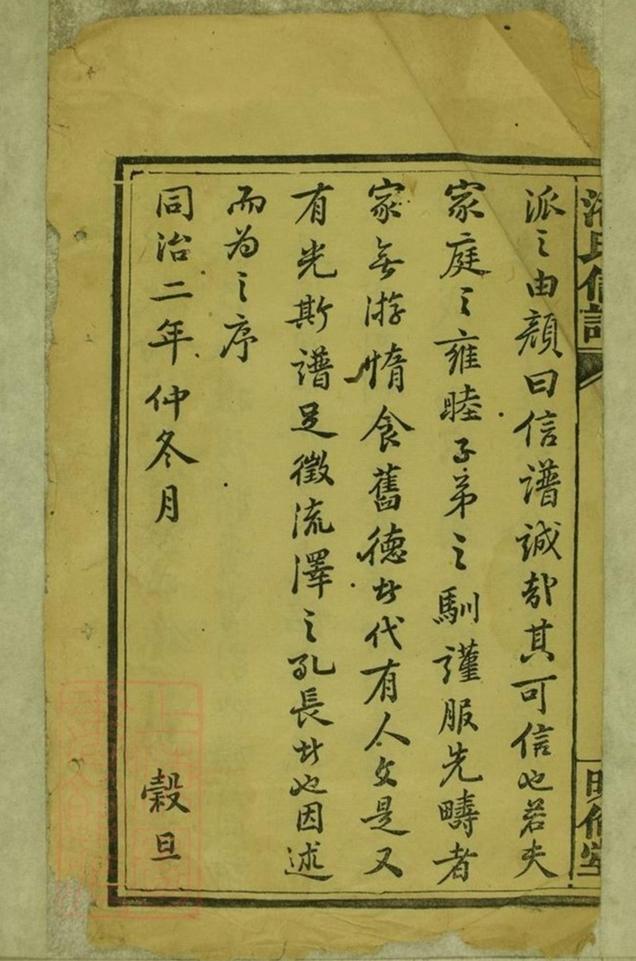 派之由顔曰信譜誠哉其可信也若夫
家庭之雍睦子弟之馴謹服先疇者
家無游惰食舊德者代有人文是又
有光斯譜足徵流澤之孔長者也因述
而為之序
同治二年仲冬月 穀旦
氏信譜
明倫堂